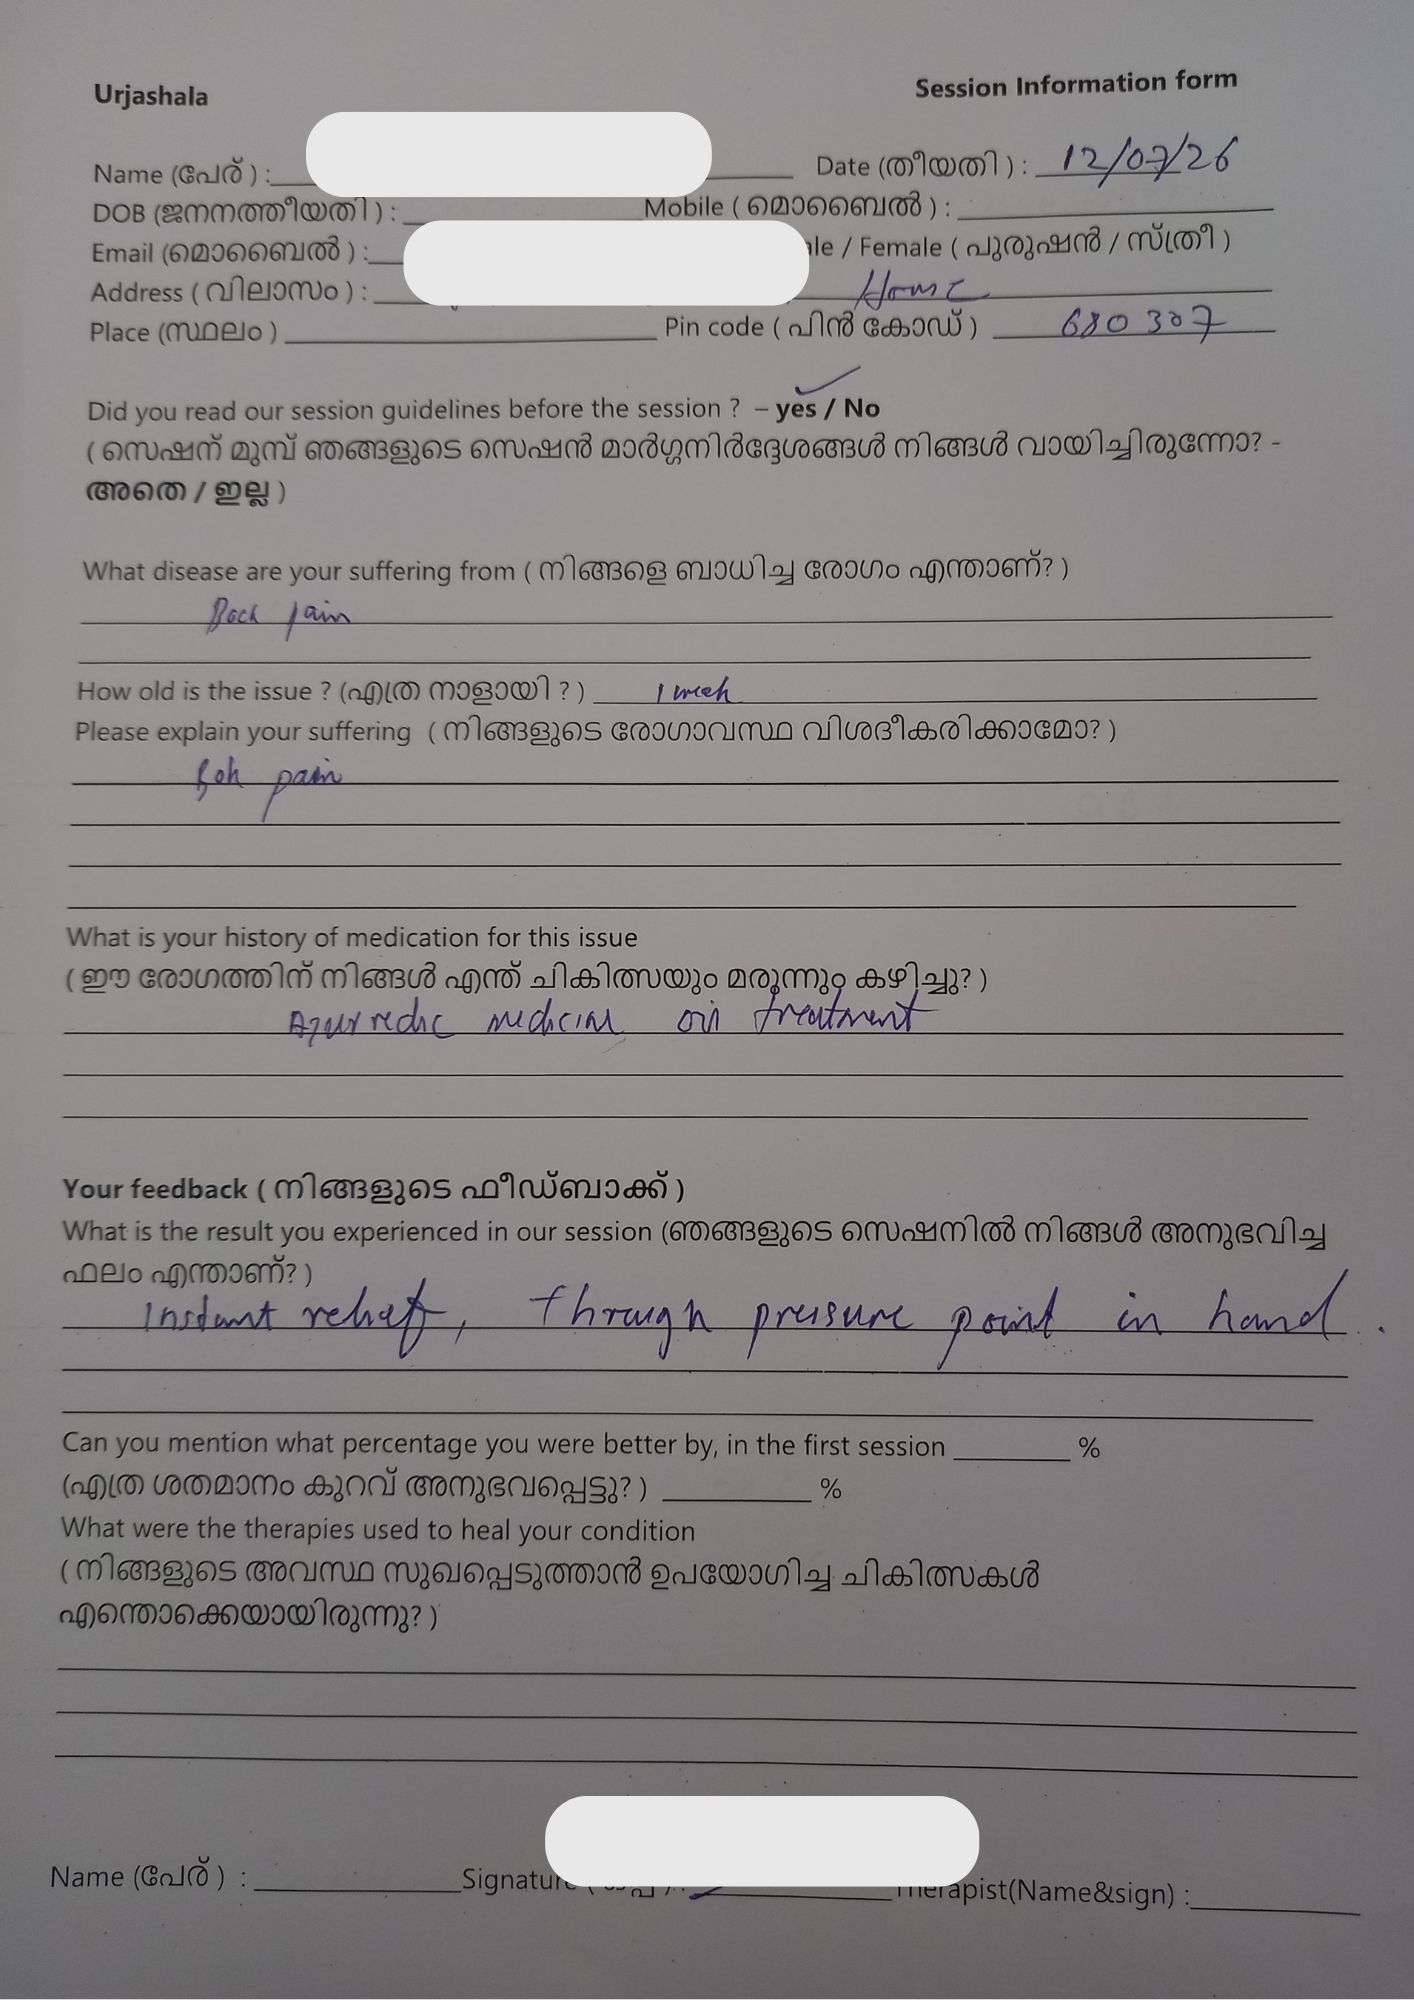 Urjashala Session Information form
Name (പേര്) : Date (തീയതി) : 12/07/26
DOB (ജനനത്തീയതി) : Mobile ( മൊബൈൽ ) :
Email (മൊബൈൽ ) : / Female ( പുരുഷൻ / സ്ത്രീ )
Address ( വിലാസം ) : House
Place (സ്ഥലം ) Pin code ( പിൻ കോഡ് ) 680307
Did you read our session guidelines before the session ? – yes / No
( സെഷന് മുമ്പ് ഞങ്ങളുടെ സെഷൻ മാർഗ്ഗനിർദ്ദേശങ്ങൾ നിങ്ങൾ വായിച്ചിരുന്നോ? -
അതെ / ഇല്ല )
What disease are your suffering from ( നിങ്ങളെ ബാധിച്ച രോഗം എന്താണ്? )
Back pain
How old is the issue ? (എത്ര നാളായി ? ) 1 week
Please explain your suffering ( നിങ്ങളുടെ രോഗാവസ്ഥ വിശദീകരിക്കാമോ? )
pain
What is your history of medication for this issue
( ഈ രോഗത്തിന് നിങ്ങൾ എന്ത് ചികിത്സയും മരുന്നും കഴിച്ചു? )
Ayurvedic oil treatment
Your feedback ( നിങ്ങളുടെ ഫീഡ്ബാക്ക് )
What is the result you experienced in our session (ഞങ്ങളുടെ സെഷനിൽ നിങ്ങൾ അനുഭവിച്ച
ഫലം എന്താണ്? )
Instant relief, through pressure point in hand.
Can you mention what percentage you were better by, in the first session %
(എത്ര ശതമാനം കുറവ് അനുഭവപ്പെട്ടു? ) %
What were the therapies used to heal your condition
( നിങ്ങളുടെ അവസ്ഥ സുഖപ്പെടുത്താൻ ഉപയോഗിച്ച ചികിത്സകൾ
എന്തൊക്കെയായിരുന്നു? )
Name (പേര് ) : Signature Therapist(Name&sign) :